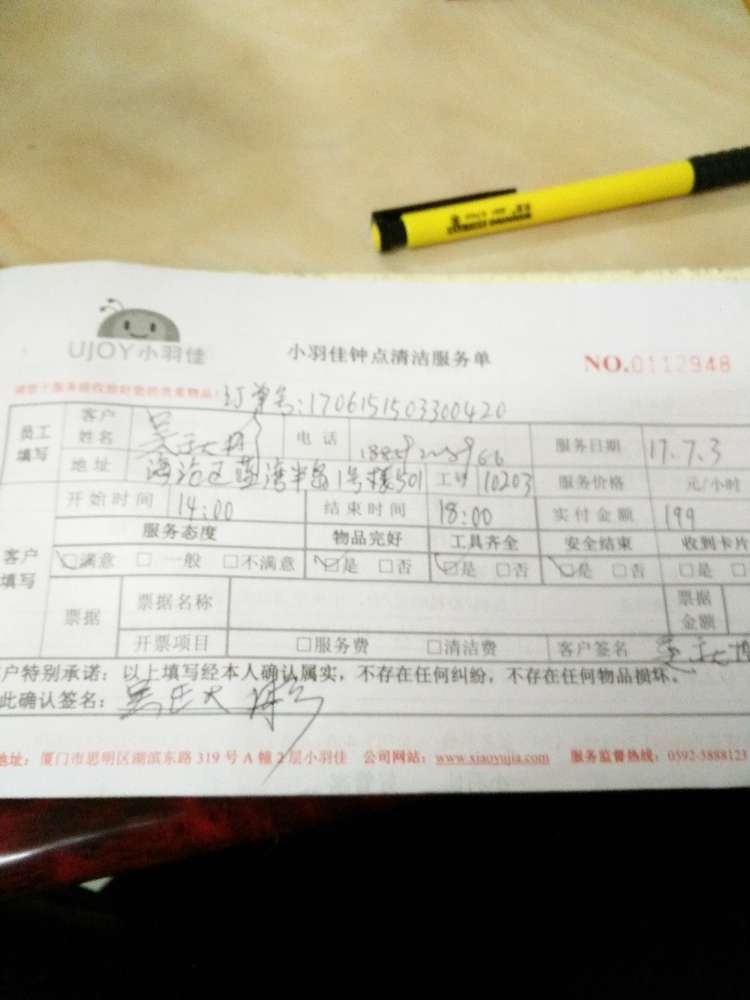 UJOY小羽佳
小羽佳钟点清洁服务单
NO.0112948
订单号:1706151503300420
员工填写 客户姓名 电话 服务日期 17.7.3
地址 1号楼501 工号 10203 服务价格 元/小时
开始时间 14:00 结束时间 18:00 实付金额 199
客户填写 服务态度 物品完好 工具齐全 安全结束 收到卡片
☑满意 □一般 □不满意 ☑是 □否 ☑是 □否 ☑是 □否 □是
票据 票据名称 票据金额
开票项目 □服务费 □清洁费 客户签名
户特别承诺：以上填写经本人确认属实，不存在任何纠纷，不存在任何物品损坏。
此确认签名：
地址：厦门市思明区湖滨东路 319 号 A 幢 2 层小羽佳 公司网站：www.xiaoyujia.com 服务监督热线：0592-5888123